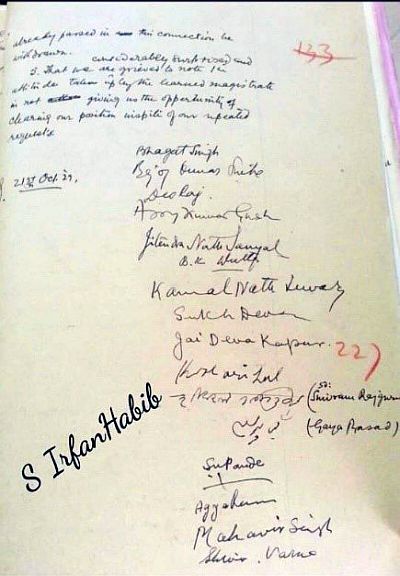 already passed in this connection be
withdrawn.
considerably surprised and
5. That we are grieved to note the
attitude taken by the learned magistrate
in not giving us the opportunity of
clearing our position inspite of our repeated
requests.
133
21st Oct. 29,
Bhagat Singh
Bejoy Kumar Sinha
Desraj.
Ajoy Kumar Ghosh
Jitendra Nath Sanyal
B. K. Dutt
Kamal Nath Tewary
Sukh Dev
Jai Deva Kapur.
227
Kishori Lal
(Sd: Shivram Rajguru
(Gaya Prasad)
S N Pande
Aggya Ram
Mahavir Singh
Shiv Varma
S IrfanHabib